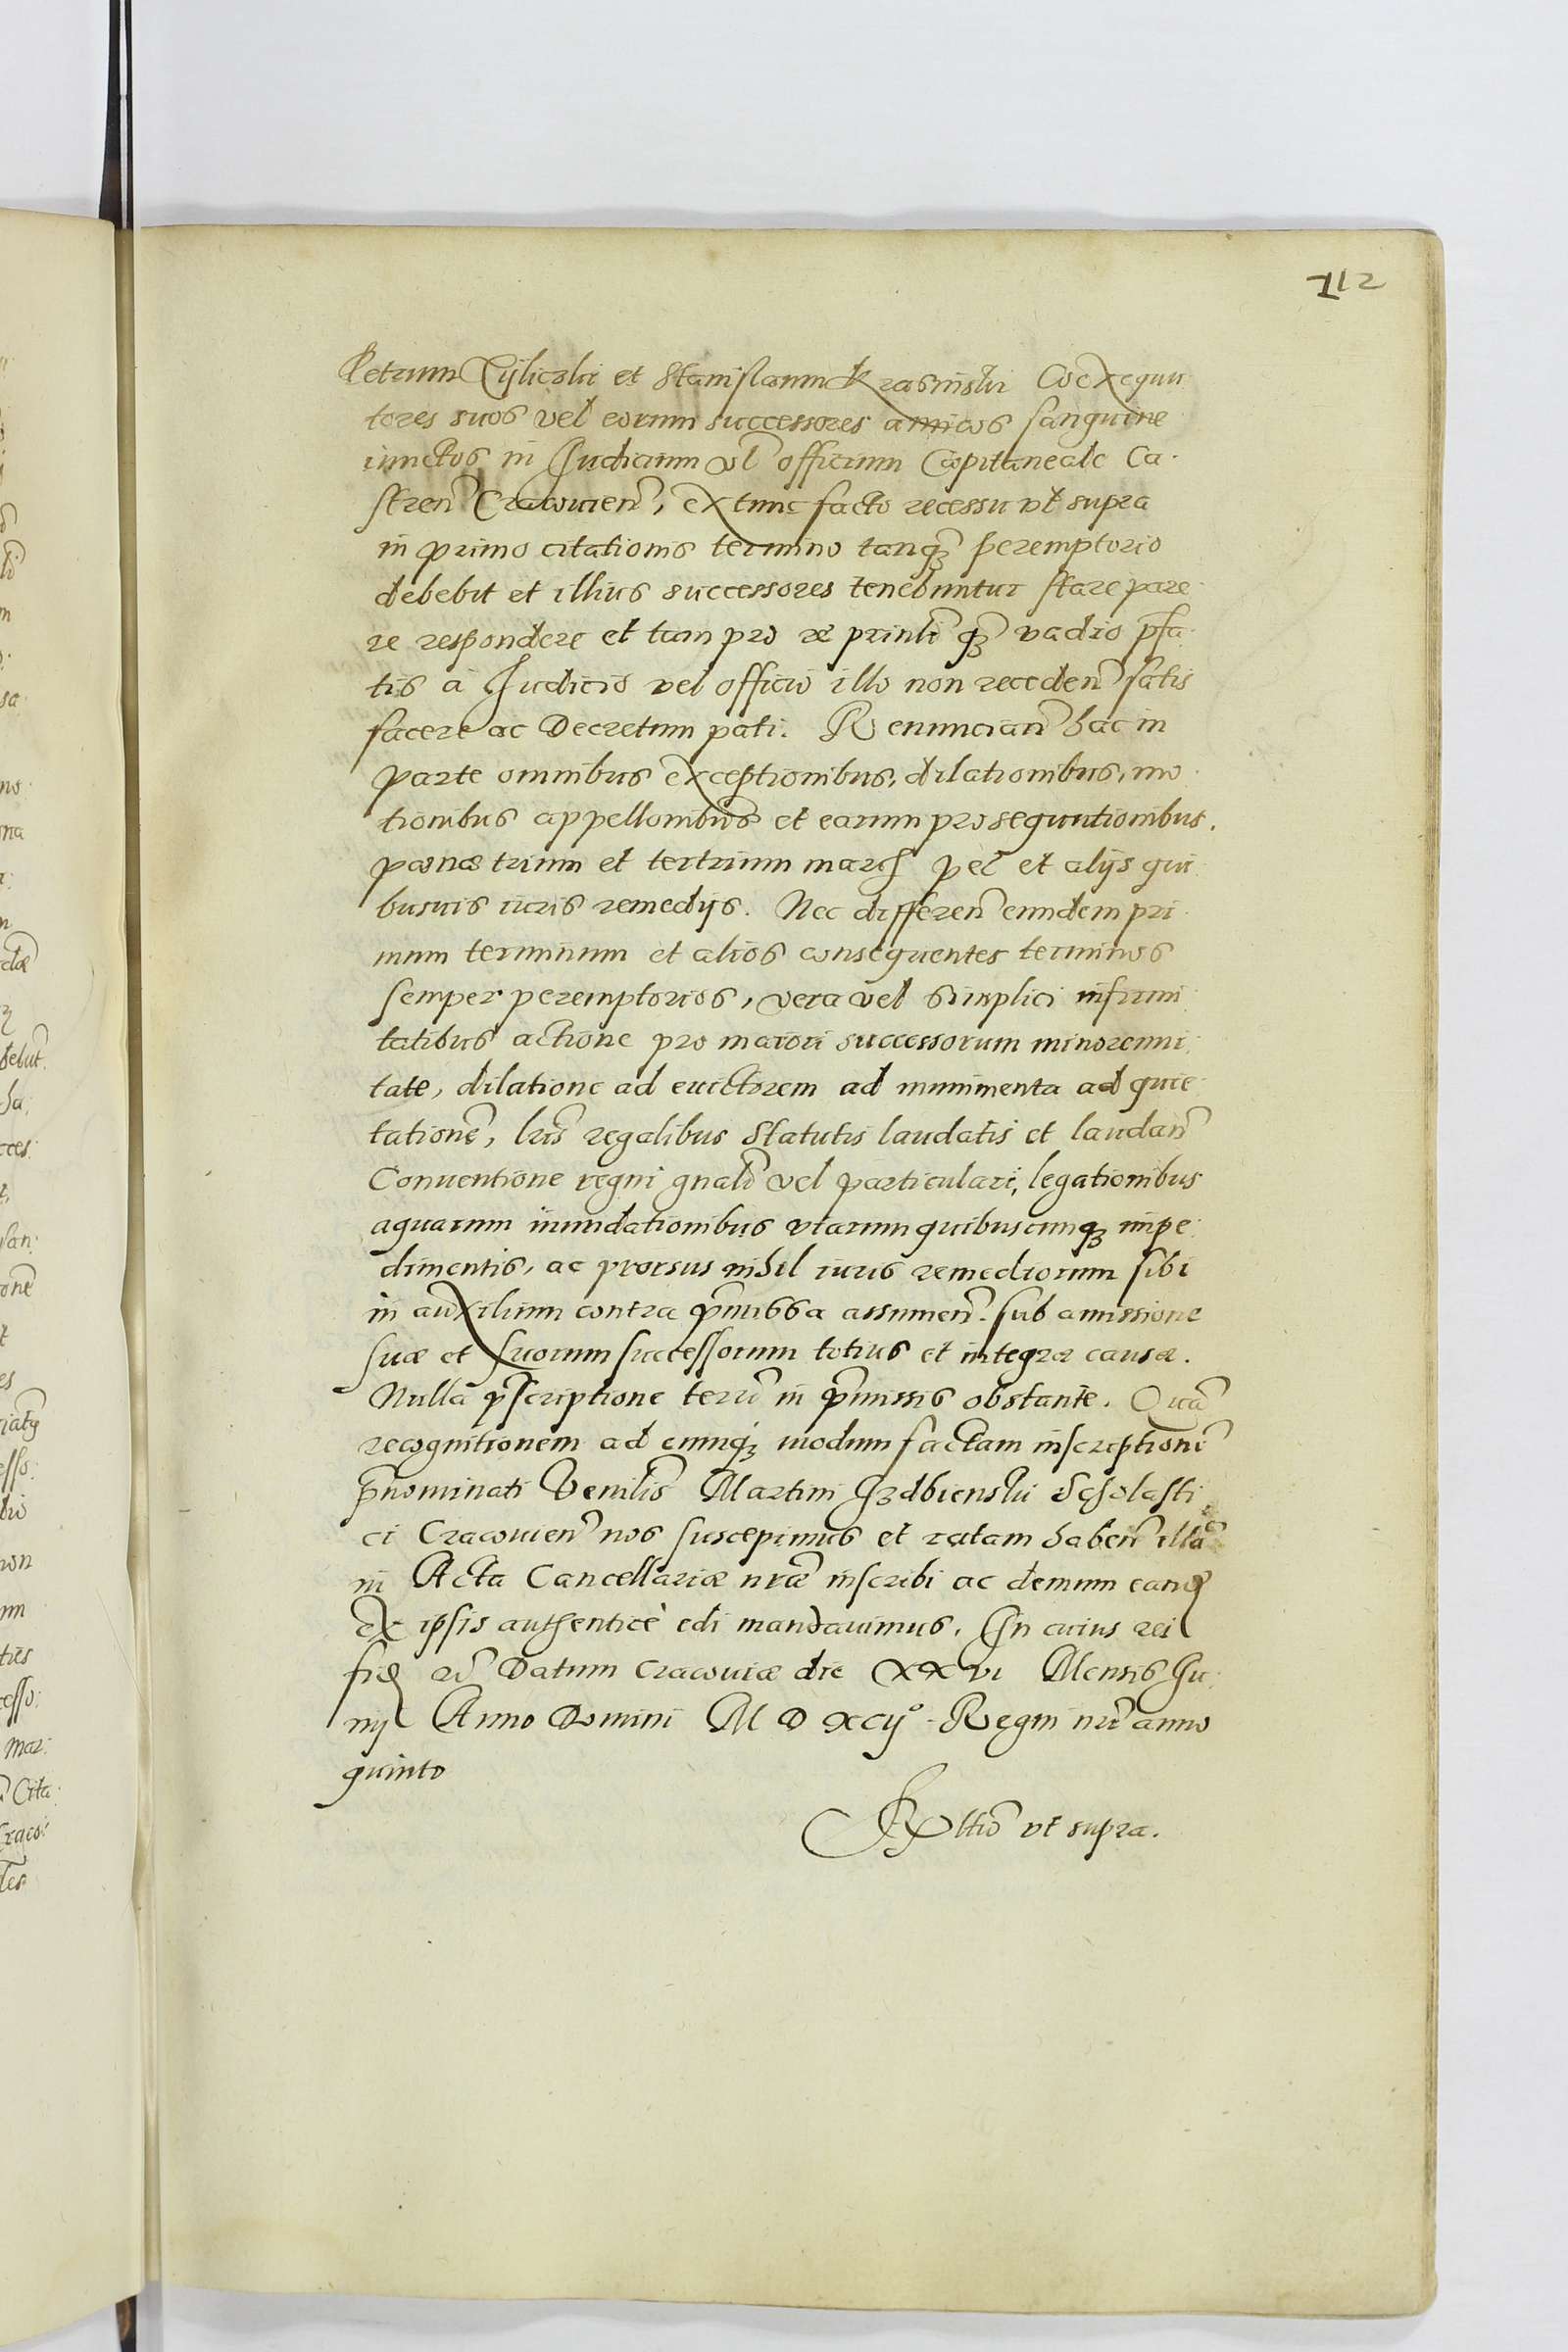 112
Petrum Tyliczki et Stanislaum Krasinski Coexequu
tores suos vel eorum successores amicos sanguine
iunctos in Iudicium vl̃ officium Capitaneale Ca.
stren̄ Cracouien̄, ex tunc facto recessu vt supra
in primo citationis termino tanq̃ peremptorio
debebit et illius successores tenebuntur stare pare
re respondere et tam pro re prinli q̃ vadio pfa
tis à Iudicio vel officio illo non receden̄ satis
facere ac Decretum pati. Renuncian̄ hac in
parte omnibus exceptionibus, dilationibus, mo
tionibus appellonibus et earum prosequutionibus.
pœnæ trium et tertrium march pec̄ et alijs qui
busuis iuris remedijs. Nec differen̄ eundem pri
mum terminum et alios consequentes terminos
semper peremptorios, vera vel simplici infirmi
tatibus actione pro maiori successorum minorenni
tate, dilatione ad euictorem ad munimenta ad quie
tationē, lr̃is regalibus Statutis laudatis et laudan̄
Conuentione regni gnali vel particulari, legationibus
aquarum inundationibus viarum quibuscunq̃ impe
dimentis, ac prorsus nihil iuris remediorum sibi
in auxilium contra p̄missa assumen̄. sub amissione
suæ et suorum successorum totius et integræ causæ.
Nulla p̄scriptione terr̄ in p̄missis obstante. Quā
recognitionem ad eumq̃ modum factam inscriptionē
p̄nominati Venilis Martini Izdbienski Scholasti
ci Cracouien̄ nos suscepimus et ratam haben̄ illā
in Acta Cancellariæ nr̃æ inscribi ac demum eand
ex ipsis authenticè edi mandauimus. In cuius rei
fid &c̄ Datum Cracouiæ die XXVI Mensis Iu
nij Anno Domini M D XCIJ° Regni nr̃i anno
quinto
Rltio vt supra.